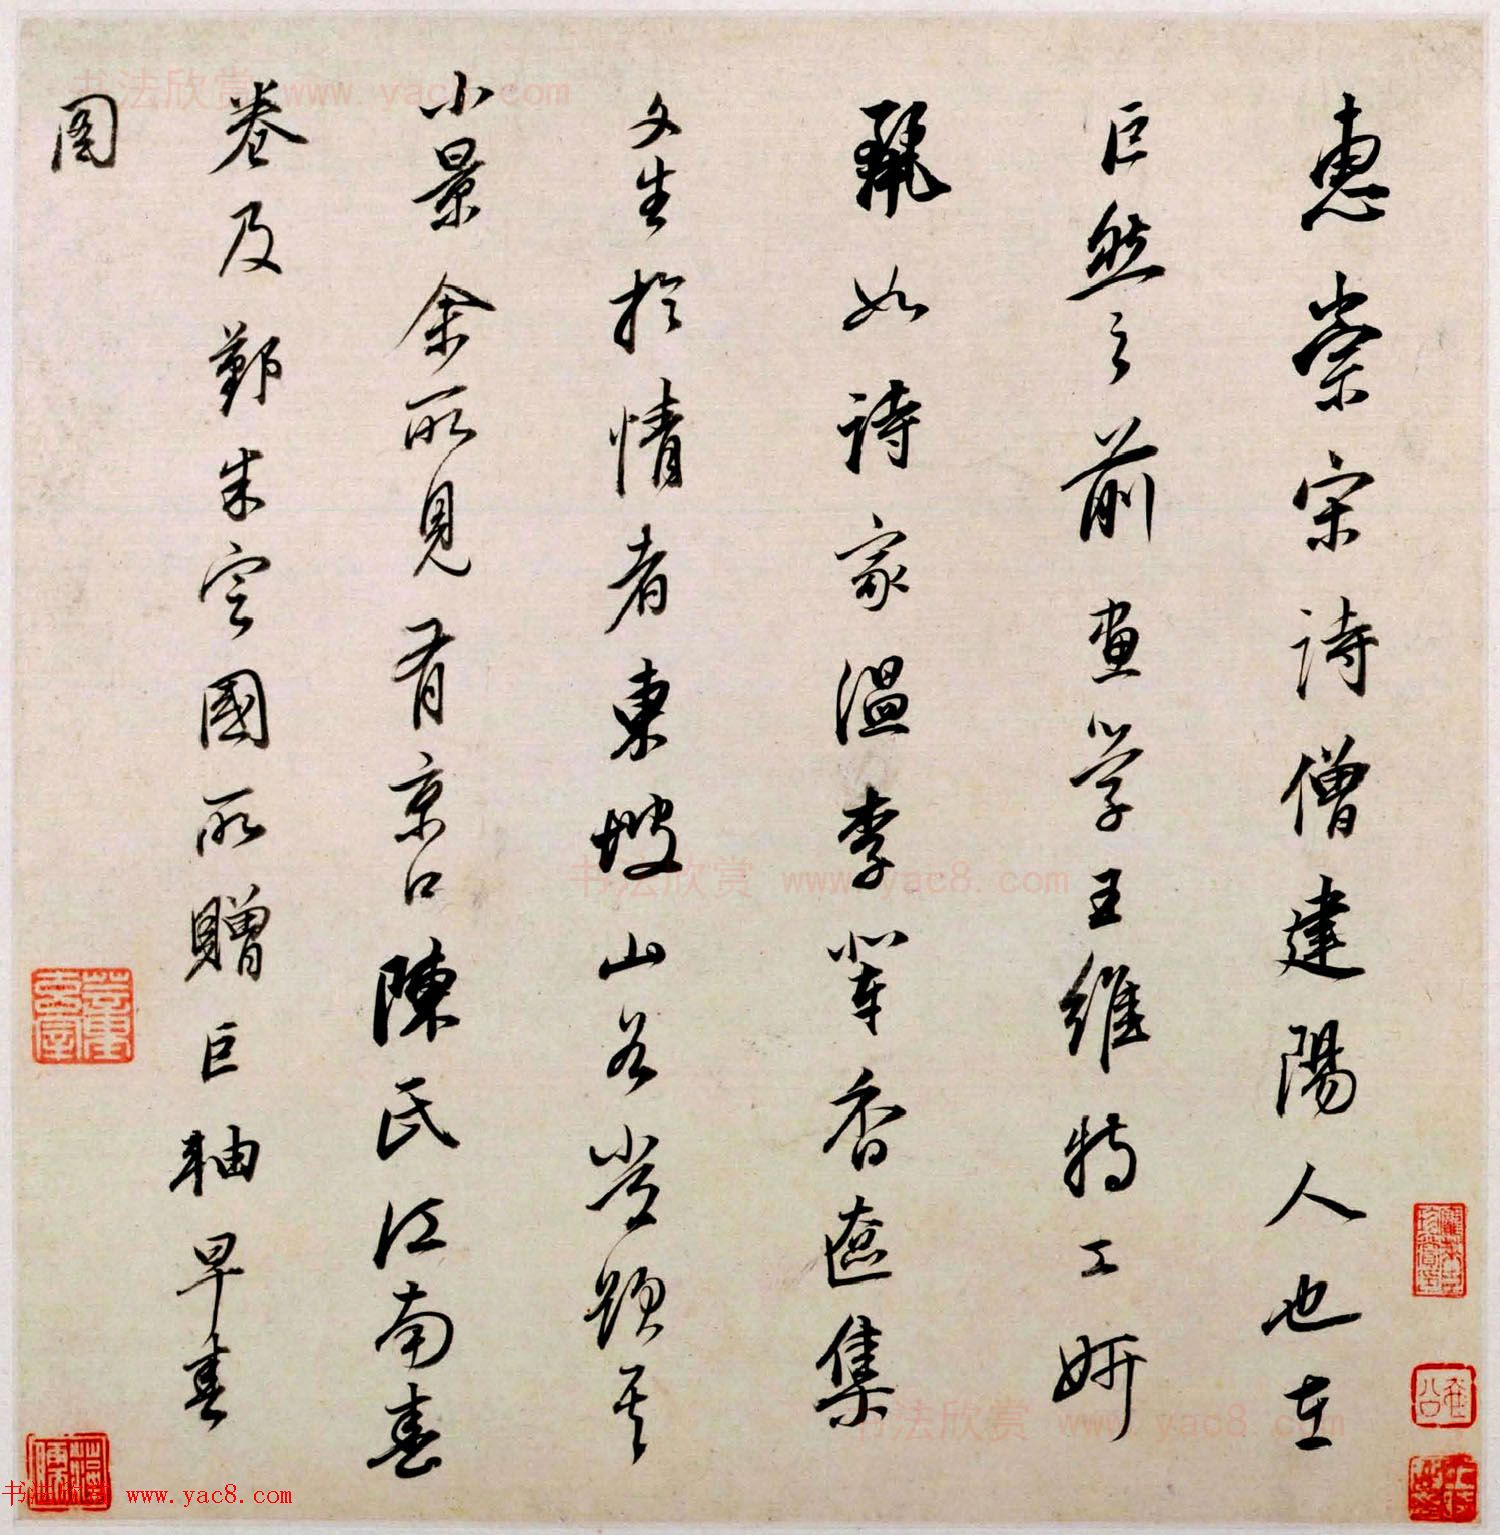 惠崇宋詩僧建陽人也在
巨然之前畫學王維特工妍
麗如詩家溫李輩香奩集
文生於情者東坡山谷嘗題其
小景余所見有京口陳氏江南春
卷及鄞朱定國所贈巨軸早春
圖
书法欣赏 www.yac8.com
书法欣赏 www.yac8.com
书法欣赏 www.yac8.com
书法欣赏 www.yac8.com